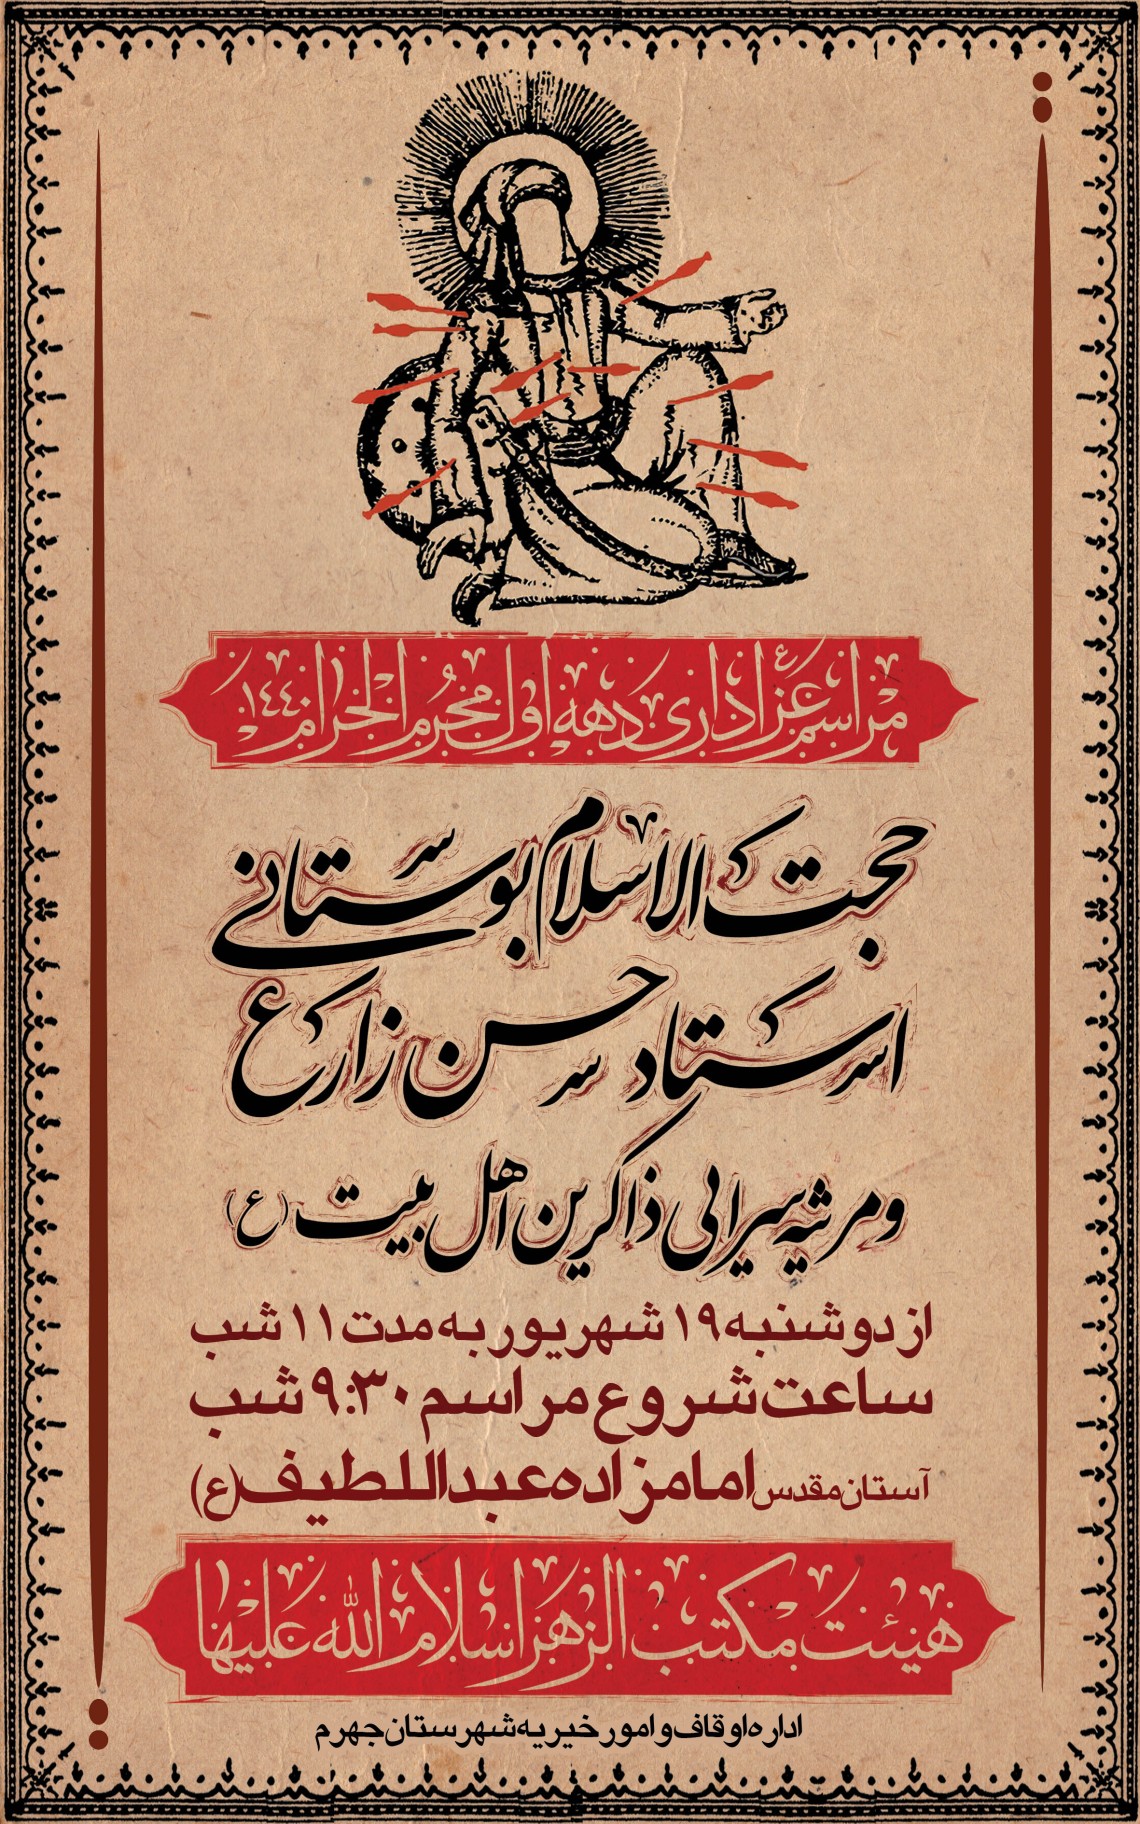 مراسم عزاداری دهه اول محرم الحرام ۱۴۴۰
حجت الاسلام بوستانی
استاد حسن زارع
و مرثیه سرایی ذاکرین اهل بیت (ع)
از دوشنبه ۱۹ شهریور به مدت ۱۱ شب
ساعت شروع مراسم ۹:۳۰ شب
آستان مقدس امامزاده عبداللطیف (ع)
هیئت مکتب الزهرا سلام الله علیها
اداره اوقاف و امور خیریه شهرستان جهرم